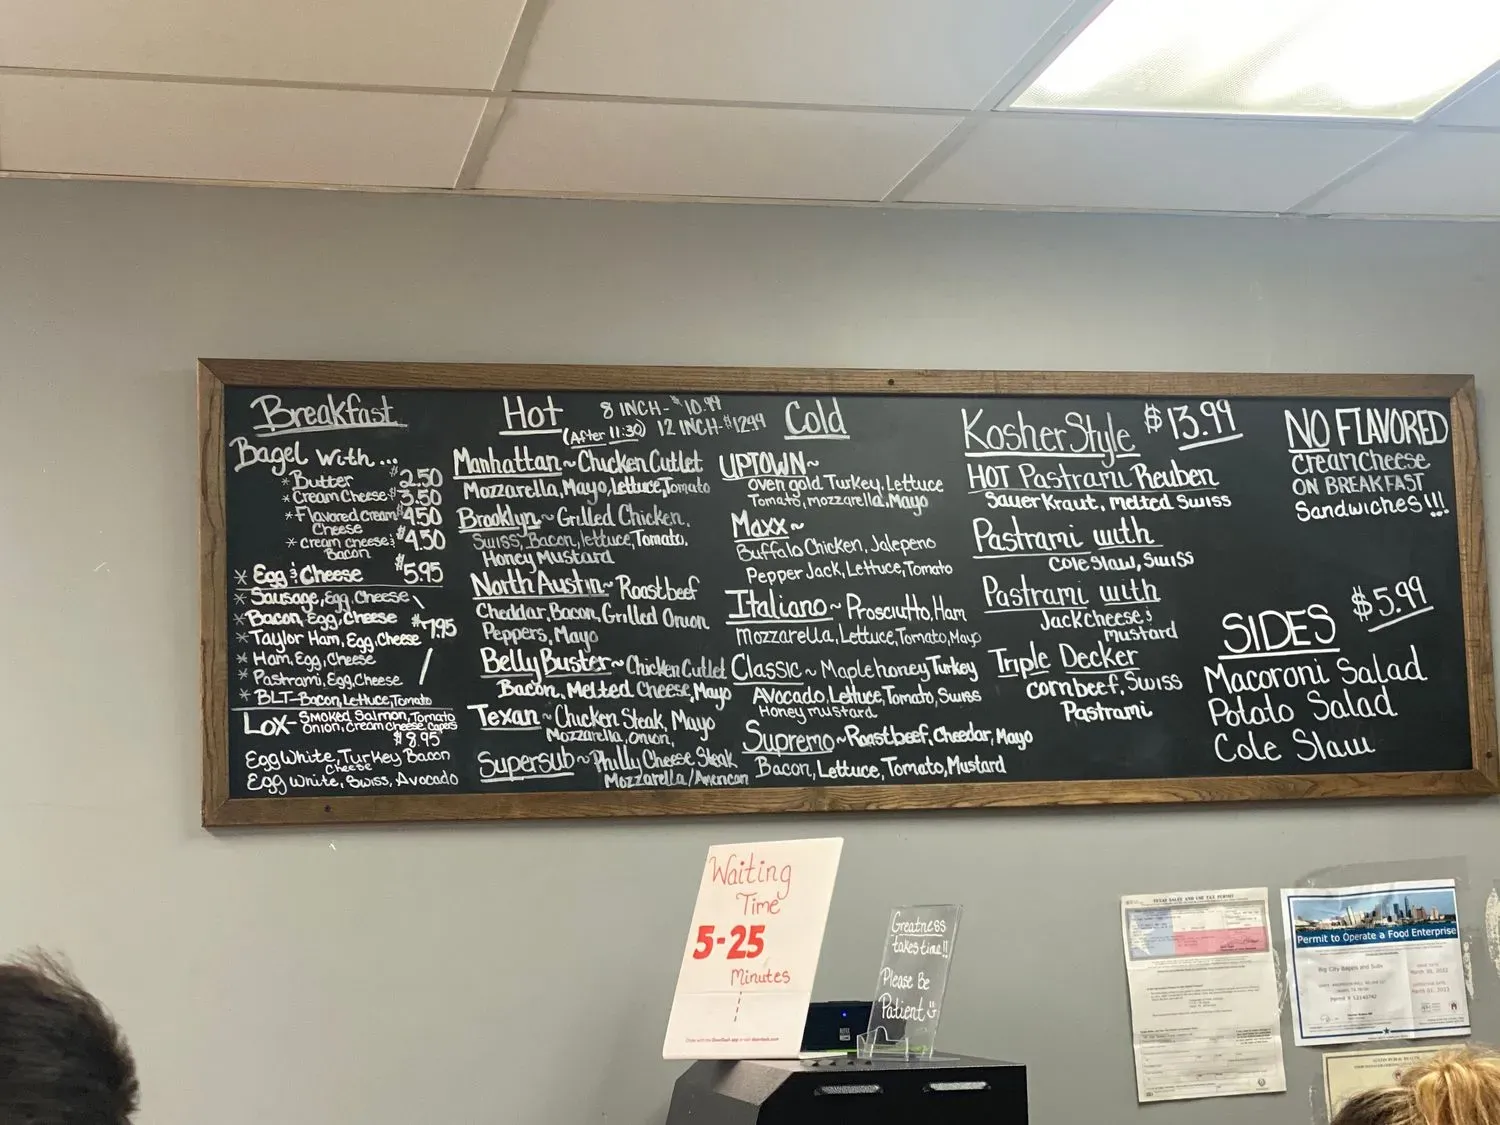 Breakfast
Bagel with...
* Butter $2.50
* Cream Cheese $3.50
* Flavored Cream $4.50
Cheese
* Cream cheese & $4.50
Bacon
* Egg & Cheese $5.95
* Sausage, Egg, Cheese
* Bacon, Egg, Cheese $7.95
* Taylor Ham, Egg, Cheese
* Ham, Egg, Cheese
* Pastrami, Egg, Cheese
* BLT-Bacon, Lettuce, Tomato
LOX- Smoked Salmon, Tomato
Onion, Cream Cheese, Capes
$8.95
Egg White, Turkey Bacon
Cheese
Egg White, Swiss, Avocado
Hot
(After 11:30)
8 INCH- $10.99
12 INCH- $12.99
Manhattan ~ Chicken Cutlet
Mozzarella, Mayo, Lettuce, Tomato
Brooklyn ~ Grilled Chicken,
Swiss, Bacon, lettuce, Tomato,
Honey Mustard
North Austin ~ Roastbeef
Cheddar, Bacon, Grilled Onion
Peppers, Mayo
Belly Buster ~ Chicken Cutlet
Bacon, Melted Cheese, Mayo
Texan ~ Chicken Steak, Mayo
Mozzarella, Onion,
Supersub ~ Philly Cheese Steak
Mozzarella/American
Cold
UPTOWN ~
oven gold Turkey, Lettuce
Tomato, mozzarella, Mayo
Maxx ~
Buffalo Chicken, Jalepeno
Pepper Jack, Lettuce, Tomato
Italiano ~ Prosciutto, Ham
Mozzarella, Lettuce, Tomato, Mayo
Classic ~ Maplehoney Turkey
Avocado, Lettuce, Tomato, Swiss
Honey mustard
Supremo ~ Roastbeef, Cheedar, Mayo
Bacon, Lettuce, Tomato, Mustard
Kosher Style $13.99
HOT Pastrami Reuben
Sauer Kraut, melted Swiss
Pastrami with
Cole Slaw, Swiss
Pastrami with
Jack Cheese &
mustard
Triple Decker
Corn beef, Swiss
Pastrami
NO FLAVORED
Cream Cheese
ON BREAKFAST
Sandwiches !!!
SIDES $5.99
Macoroni Salad
Potato Salad
Cole Slaw
Waiting
Time
5-25
Minutes
Greatness
takes time!!
Please Be
Patient
TEXAS SALES AND USE TAX PERMIT
Permit to Operate a Food Enterprise
Big City Bagels and Subs